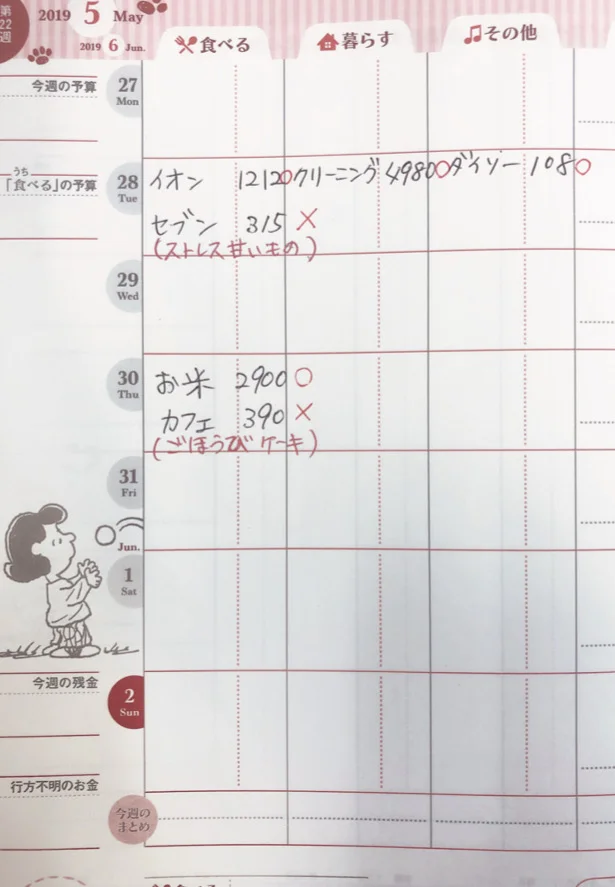 第
22
週
2019 5 May
2019 6 Jun.
食べる
暮らす
その他
今週の予算
27
Mon
うち
「食べる」の予算
28
Tue
イオン 1212○ クリーニング 4980○ ダイソー 108○
セブン 315 ×
(ストレス甘いもの)
29
Wed
30
Thu
お米 2900 ○
カフェ 390 ×
(ごほうびケーキ)
31
Fri
Jun.
1
Sat
今週の残金
2
Sun
行方不明のお金
今週の
まとめ